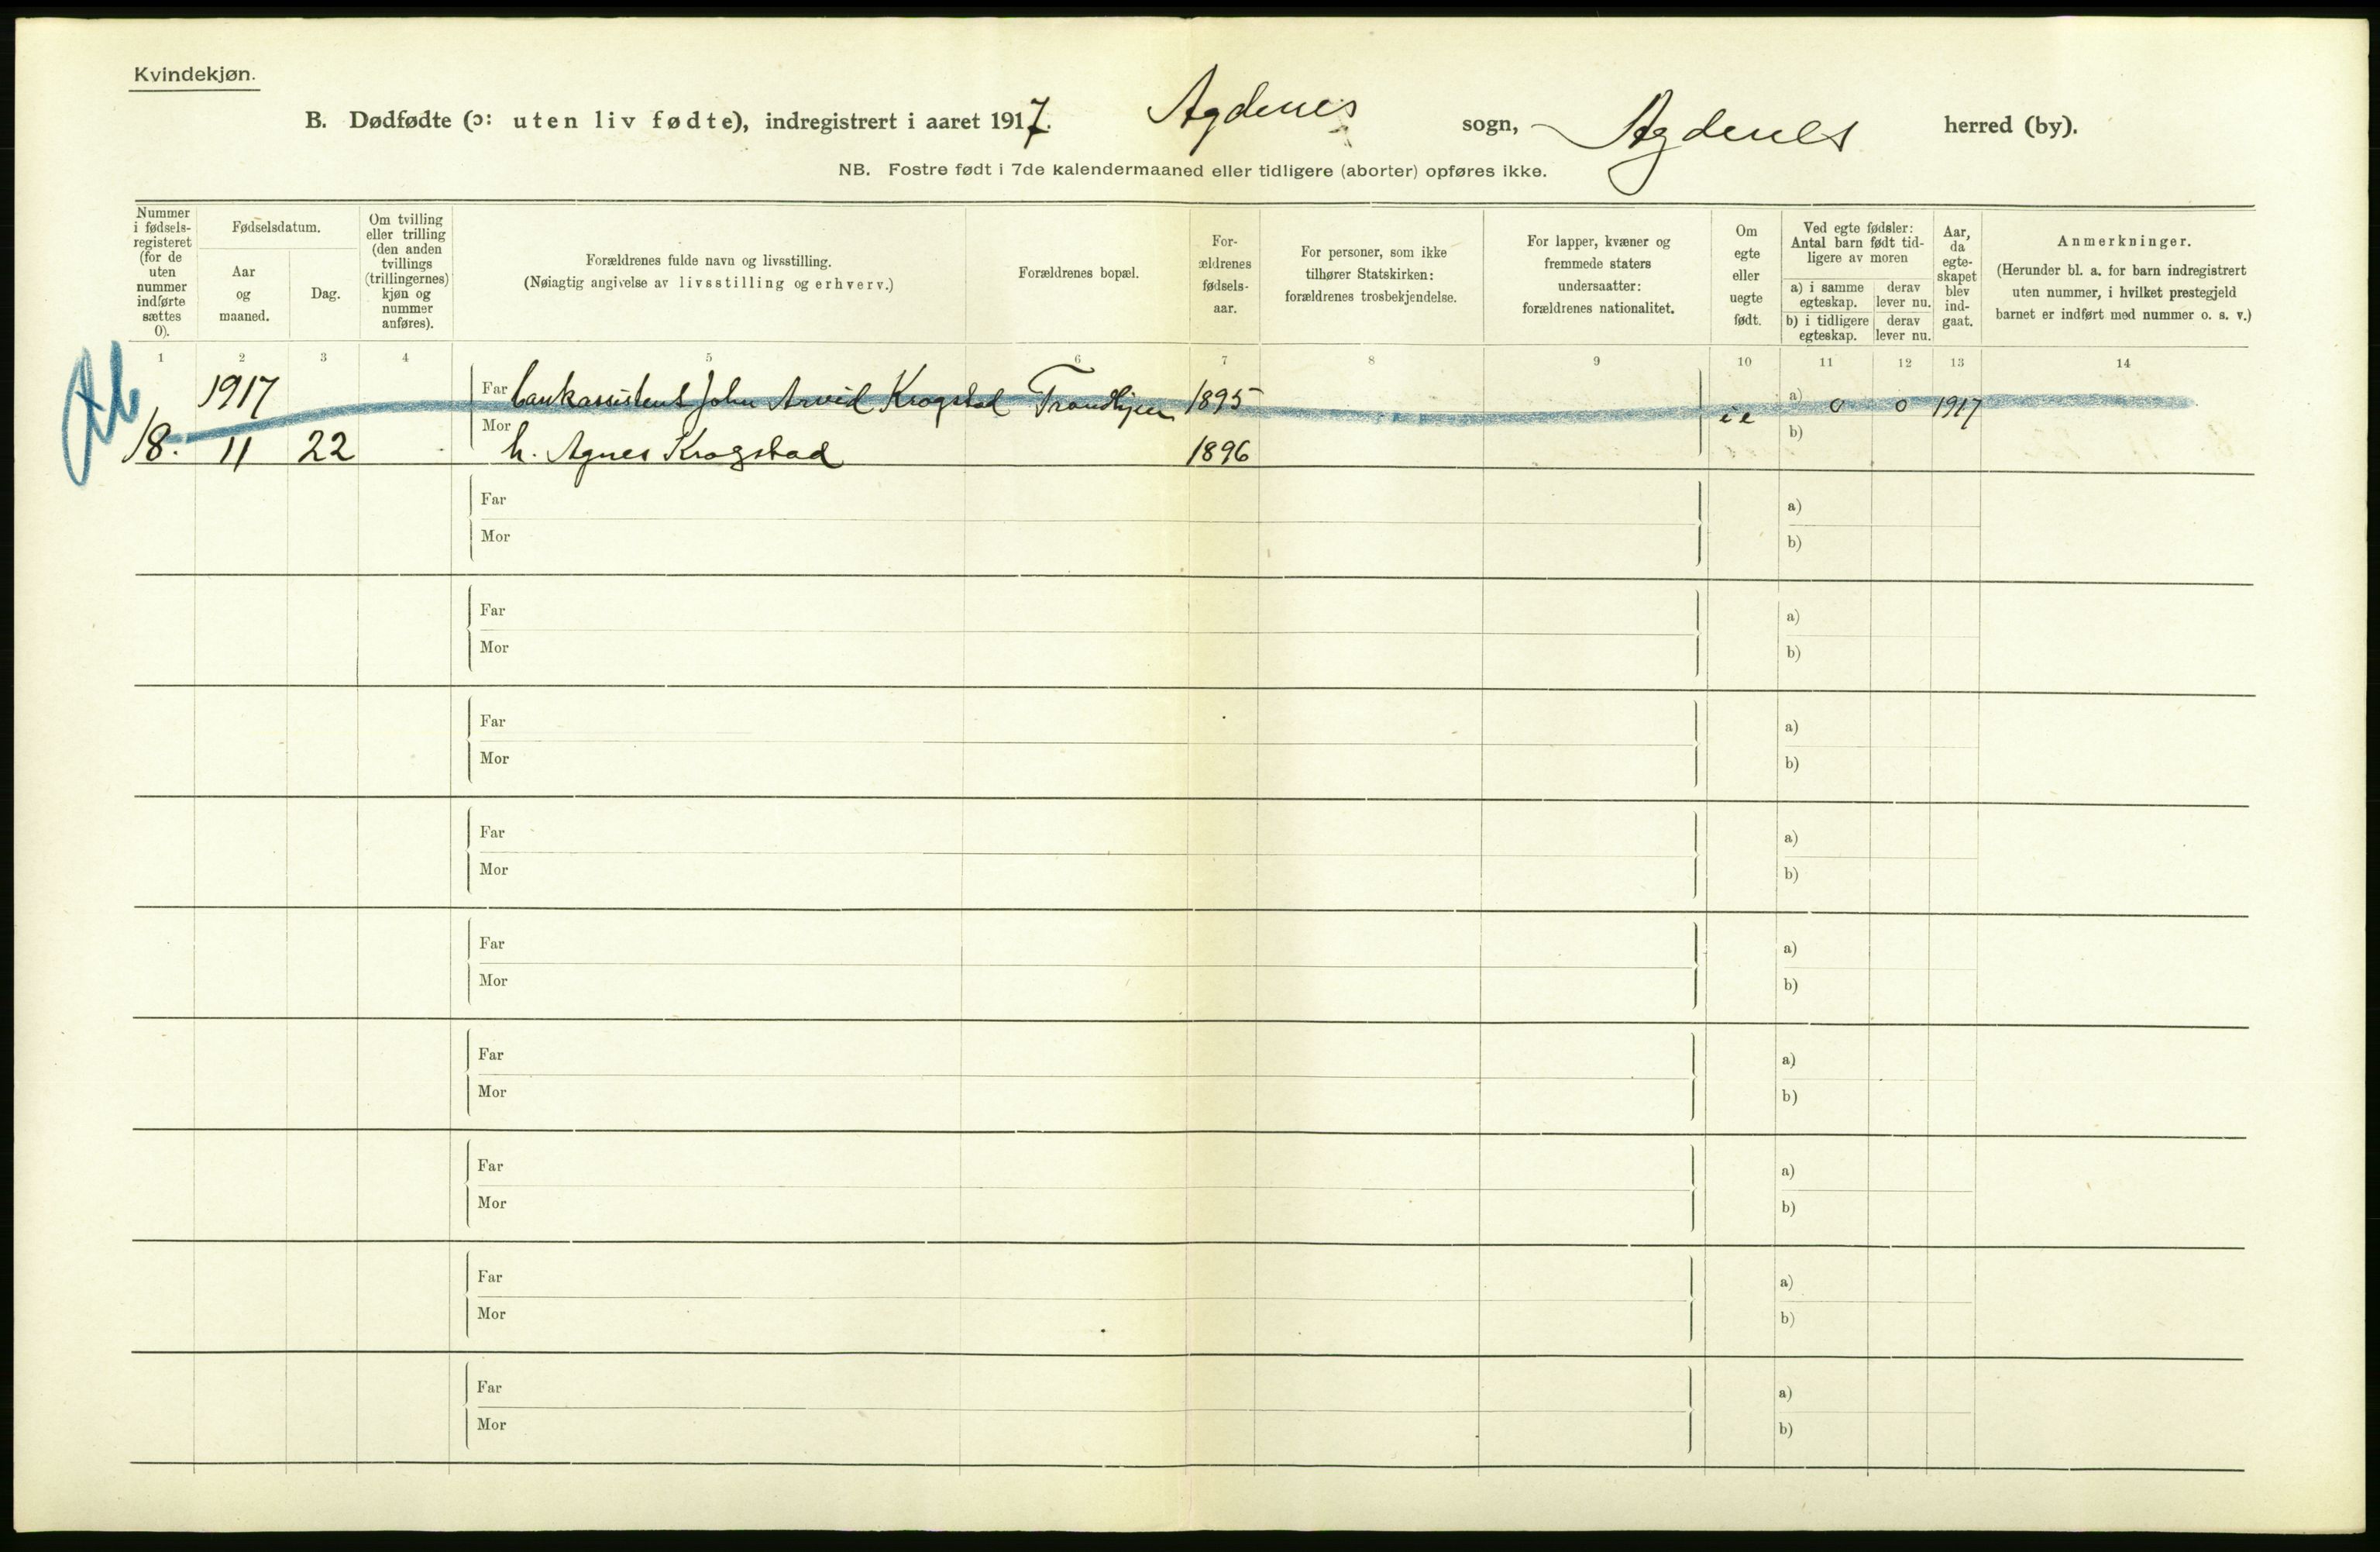 Kvindekjøn.
B. Dødfødte (ɔ: uten liv fødte), indregistrert i aaret 1917. Agdenes sogn, Agdenes herred (by).
NB. Fostre født i 7de kalendermaaned eller tidligere (aborter) opføres ikke.
Nummer i fødsels-registeret (for de uten nummer indførte sættes 0).
Fødselsdatum.
Aar og maaned.
Dag.
Om tvilling eller trilling (den anden tvillings (trillingernes) kjøn og nummer anføres).
Forældrenes fulde navn og livsstilling.
(Nøiagtig angivelse av livsstilling og erhverv.)
Forældrenes bopæl.
For-ældrenes fødsels-aar.
For personer, som ikke tilhører Statskirken: forældrenes trosbekjendelse.
For lapper, kvæner og fremmede staters undersaatter: forældrenes nationalitet.
Om egte eller uegte født.
Ved egte fødsler: Antal barn født tid-ligere av moren
a) i samme egteskap.
derav lever nu.
b) i tidligere egteskap.
derav lever nu.
Aar, da egte-skapet blev ind-gaat.
Anmerkninger.
(Herunder bl. a. for barn indregistrert uten nummer, i hvilket prestegjeld barnet er indført med nummer o. s. v.)
1 2 3 4 5 6 7 8 9 10 11 12 13 14
1917 Far bankassistent John Arvid Krogstad Trondhjem 1895 a) 0 0 1917
18. 11 22 Mor h. Agnes Krogstad 1896 b)
Far a)
Mor b)
Far a)
Mor b)
Far a)
Mor b)
Far a)
Mor b)
Far a)
Mor b)
Far a)
Mor b)
Far a)
Mor b)
Far a)
Mor b)
Far a)
Mor b)